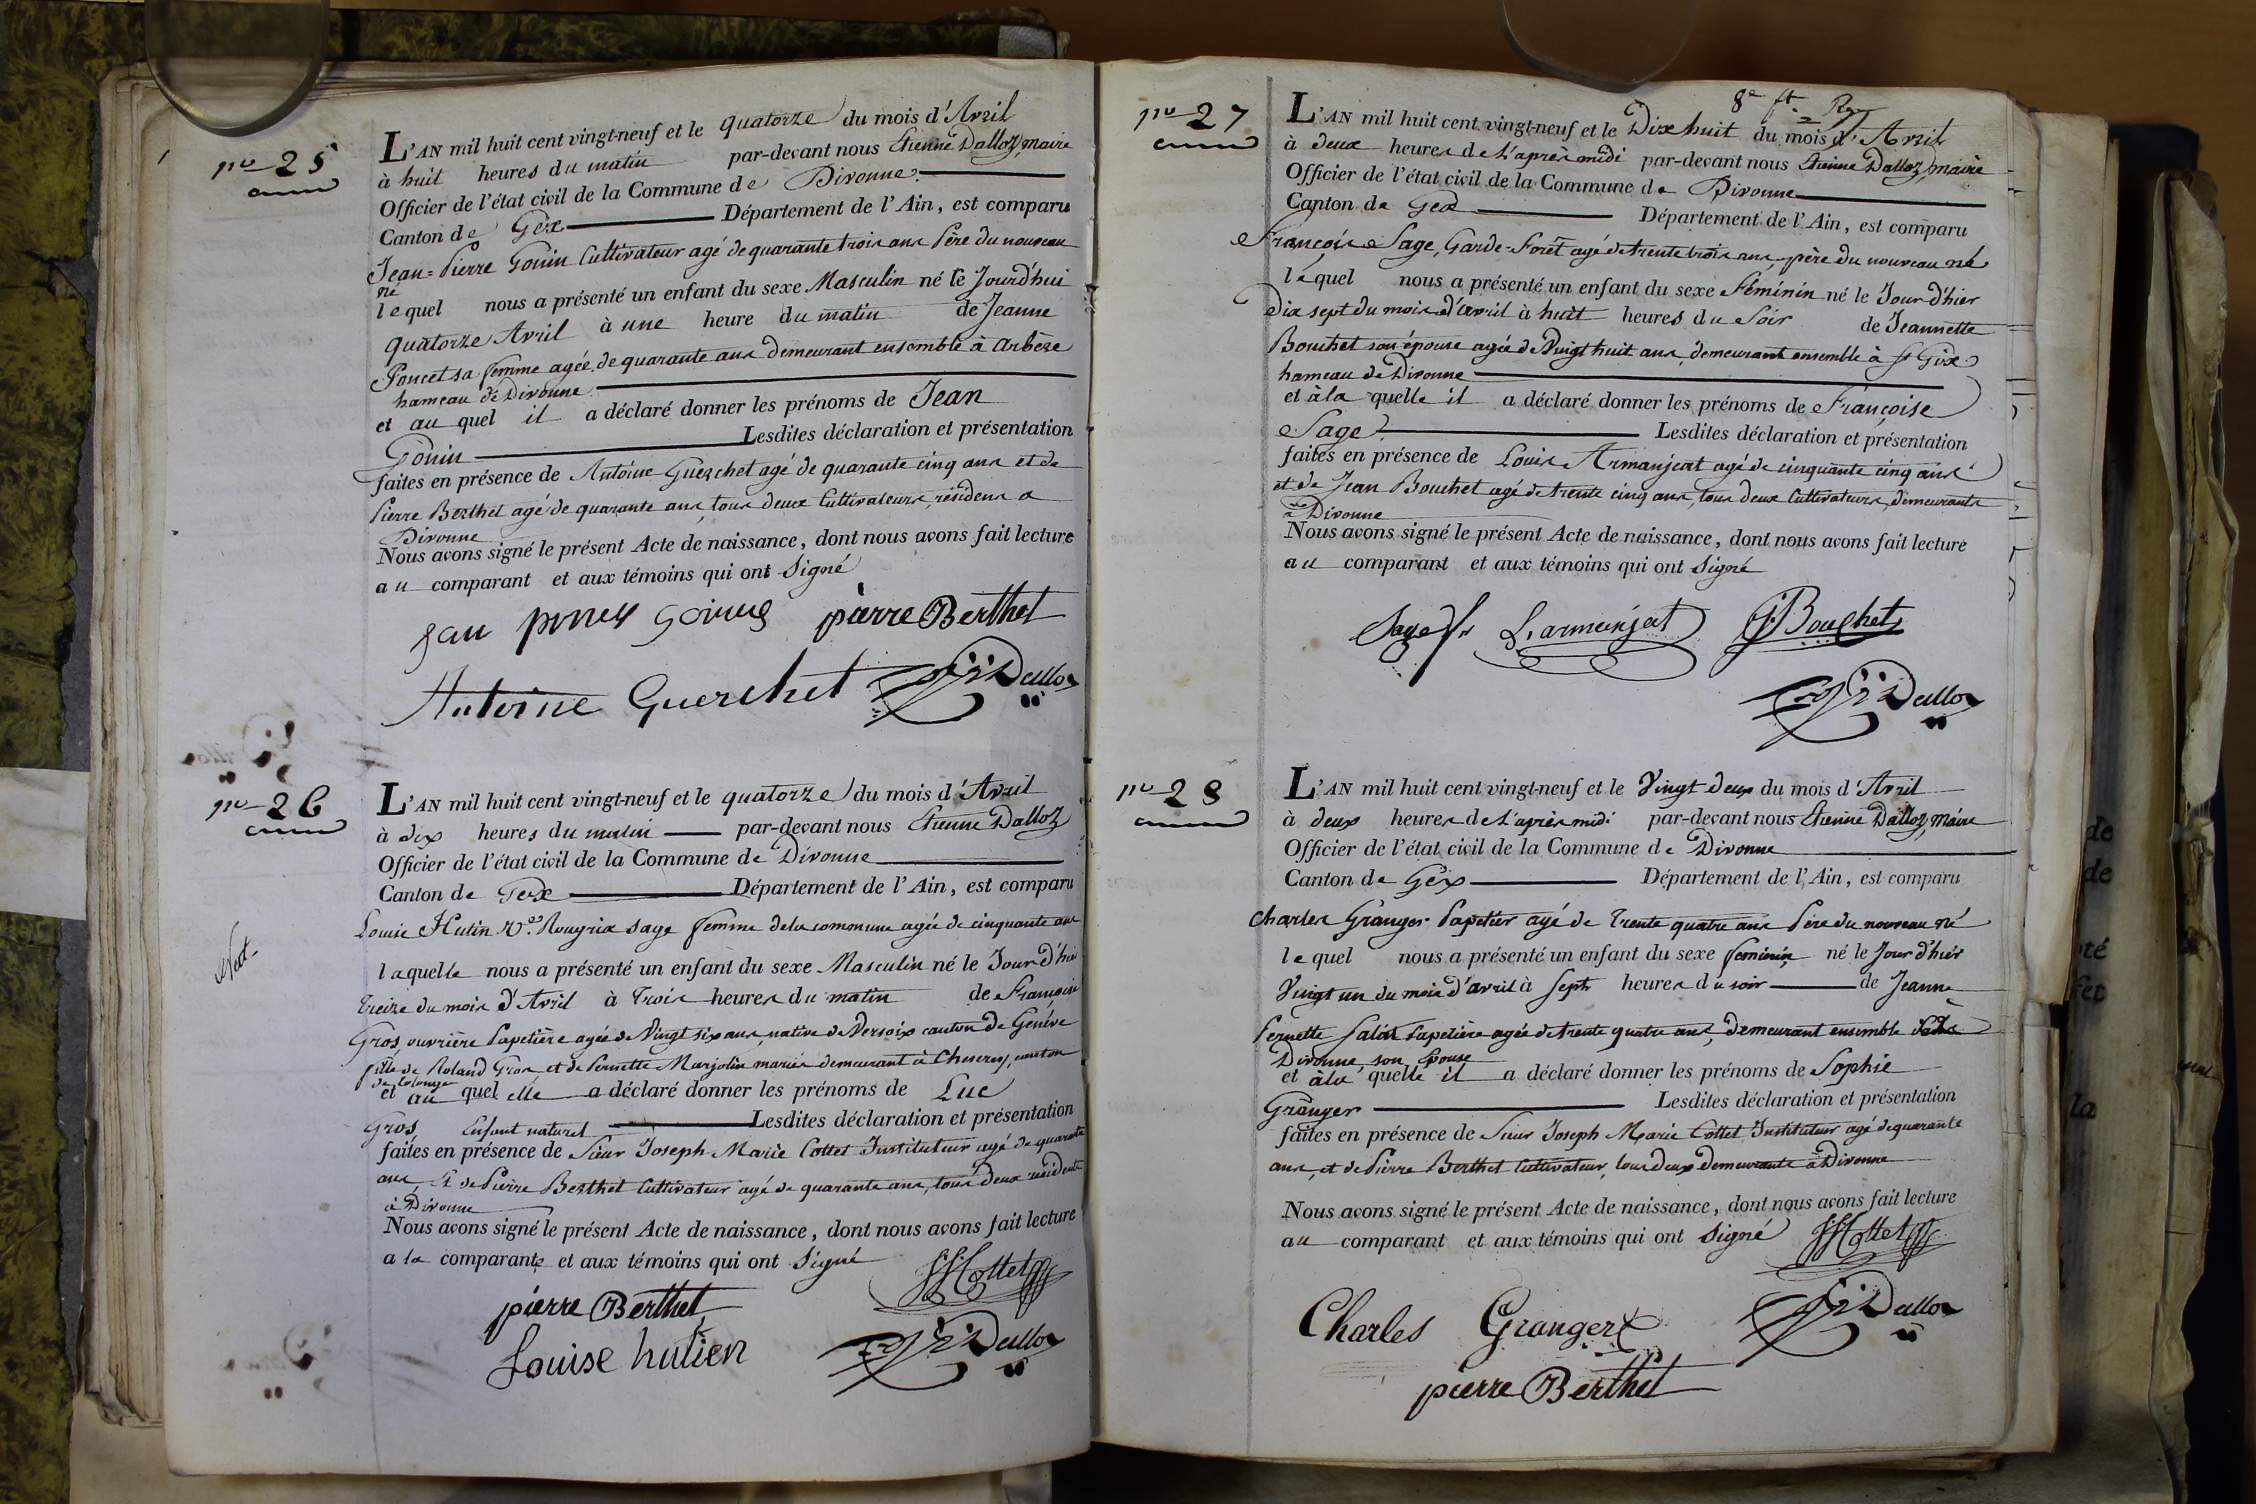 nº 25
L'AN mil huit cent vingt-neuf et le quatorze du mois d'Avril
à huit heures du matin par-devant nous Etienne Dalloz, maire
Officier de l'état civil de la Commune de Divonne.
Canton de Gex Département de l'Ain, est comparu
Jean=Pierre Gonin Cultivateur agé de quarante trois ans Père du nouveau
né
lequel nous a présenté un enfant du sexe Masculin né le Jourd'hui
quatorze Avril à une heure du matin de Jeanne
Poncet sa femme agée de quarante ans demeurant ensemble à Arbère
hameau de Divonne
et au quel il a déclaré donner les prénoms de Jean
Gonin Lesdites déclaration et présentation
faites en présence de Antoine Guerchet agé de quarante cinq ans et de
Pierre Berthet agé de quarante ans, tous deux Cultivateurs, résidens a
Divonne
Nous avons signé le présent Acte de naissance, dont nous avons fait lecture
au comparant et aux témoins qui ont Signé
pierre Berthet
Antoine Guerchet Dalloz
nº 26
L'AN mil huit cent vingt-neuf et le quatorze du mois d'Avril
à dix heures du matin par-devant nous Etienne Dalloz
Officier de l'état civil de la Commune de Divonne
Canton de Gex Département de l'Ain, est comparu
Louise Hutin Vve Rougrix sage femme de la commune agée de cinquante ans
Nat.
laquelle nous a présenté un enfant du sexe Masculin né le Jour d'hui
treize du mois d'Avril à Trois heures du matin de Françoise
Gros, ouvrière Papetière agée de Vingt six ans, native de Versoix canton de Genève
fille de Roland Gros et de Pernette Marjolin mariés demeurant à Chesery, canton
de Colonge
et au quel elle a déclaré donner les prénoms de Luc
Gros Enfant naturel Lesdites déclaration et présentation
faites en présence de Sieur Joseph Marie Cottet Instituteur agé de quarante
ans, et de Pierre Berthet Cultivateur agé de quarante ans, tous deux résidents
à Divonne
Nous avons signé le présent Acte de naissance, dont nous avons fait lecture
a la comparante et aux témoins qui ont Signé
JM Cottet
pierre Berthet
Louise hutien Dalloz
8e ft.
nº 27
L'AN mil huit cent vingt-neuf et le Dix huit du mois d'Avril
à deux heures de L'après midi par-devant nous Etienne Dalloz, maire
Officier de l'état civil de la Commune de Divonne
Canton de Gex Département de l'Ain, est comparu
François Sage, Garde-Forêt agé de trente trois ans, père du nouveau né
lequel nous a présenté un enfant du sexe Féminin né le Jour d'hier
Dix sept du mois d'avril à huit heures du Soir de Jeannette
Bouchet son épouse agée de Vingt huit ans, demeurant ensemble à St Gix
hameau de Divonne
et à la quelle il a déclaré donner les prénoms de Françoise
Sage. Lesdites déclaration et présentation
faites en présence de Louis Armanjeat agé de cinquante cinq ans
et de Jean Bouchet agé de trente cinq ans, tous deux Cultivateurs, demeurants
à Divonne
Nous avons signé le présent Acte de naissance, dont nous avons fait lecture
au comparant et aux témoins qui ont Signé
Sage fs L. armanjat J Bouchet
Dalloz
nº 28
L'AN mil huit cent vingt-neuf et le Vingt deux du mois d'Avril
à deux heures de L'après midi par-devant nous Etienne Dalloz, Maire
Officier de l'état civil de la Commune de Divonne
Canton de Gex Département de l'Ain, est comparu
Charles Granger Papetier agé de Trente quatre ans Père du nouveau né
lequel nous a présenté un enfant du sexe feminin né le Jour d'hier
Vingt un du mois d'avril à Sept heures du soir de Jeanne
Pernette Papetière agée de trente quatre ans, demeurant ensemble
Divonne son Epouse
et à la quelle il a déclaré donner les prénoms de Sophie
Granger Lesdites déclaration et présentation
faites en présence de Sieur Joseph Marie Cottet Instituteur agé de quarante
ans, et de Pierre Berthet Cultivateur, tous deux demeurants à Divonne
Nous avons signé le présent Acte de naissance, dont nous avons fait lecture
au comparant et aux témoins qui ont Signé JM Cottet
Charles Granger Dalloz
pierre Berthet